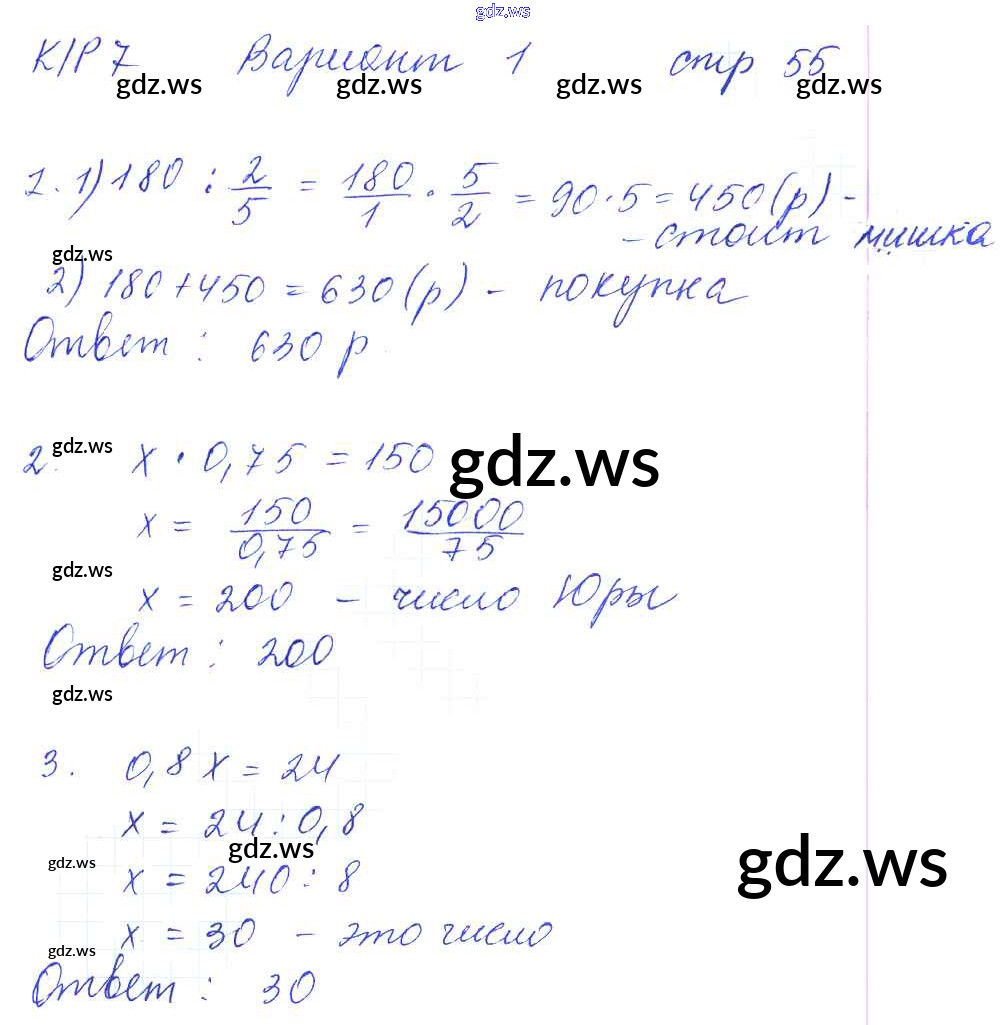 gdz.ws
К/Р 7 Вариант 1 стр 55
gdz.ws gdz.ws gdz.ws gdz.ws
1. 1) 180 : 2/5 = 180/1 · 5/2 = 90 · 5 = 450 (р) -
- стоит мишка
gdz.ws
2) 180 + 450 = 630 (р) - покупка
Ответ : 630 р.
2. x · 0,75 = 150
gdz.ws gdz.ws
x = 150/0,75 = 15000/75
gdz.ws
x = 200 - число Юры
Ответ : 200
gdz.ws
3. 0,8 x = 24
x = 24 : 0,8
gdz.ws gdz.ws gdz.ws
x = 240 : 8
x = 30 - это число
gdz.ws
Ответ : 30